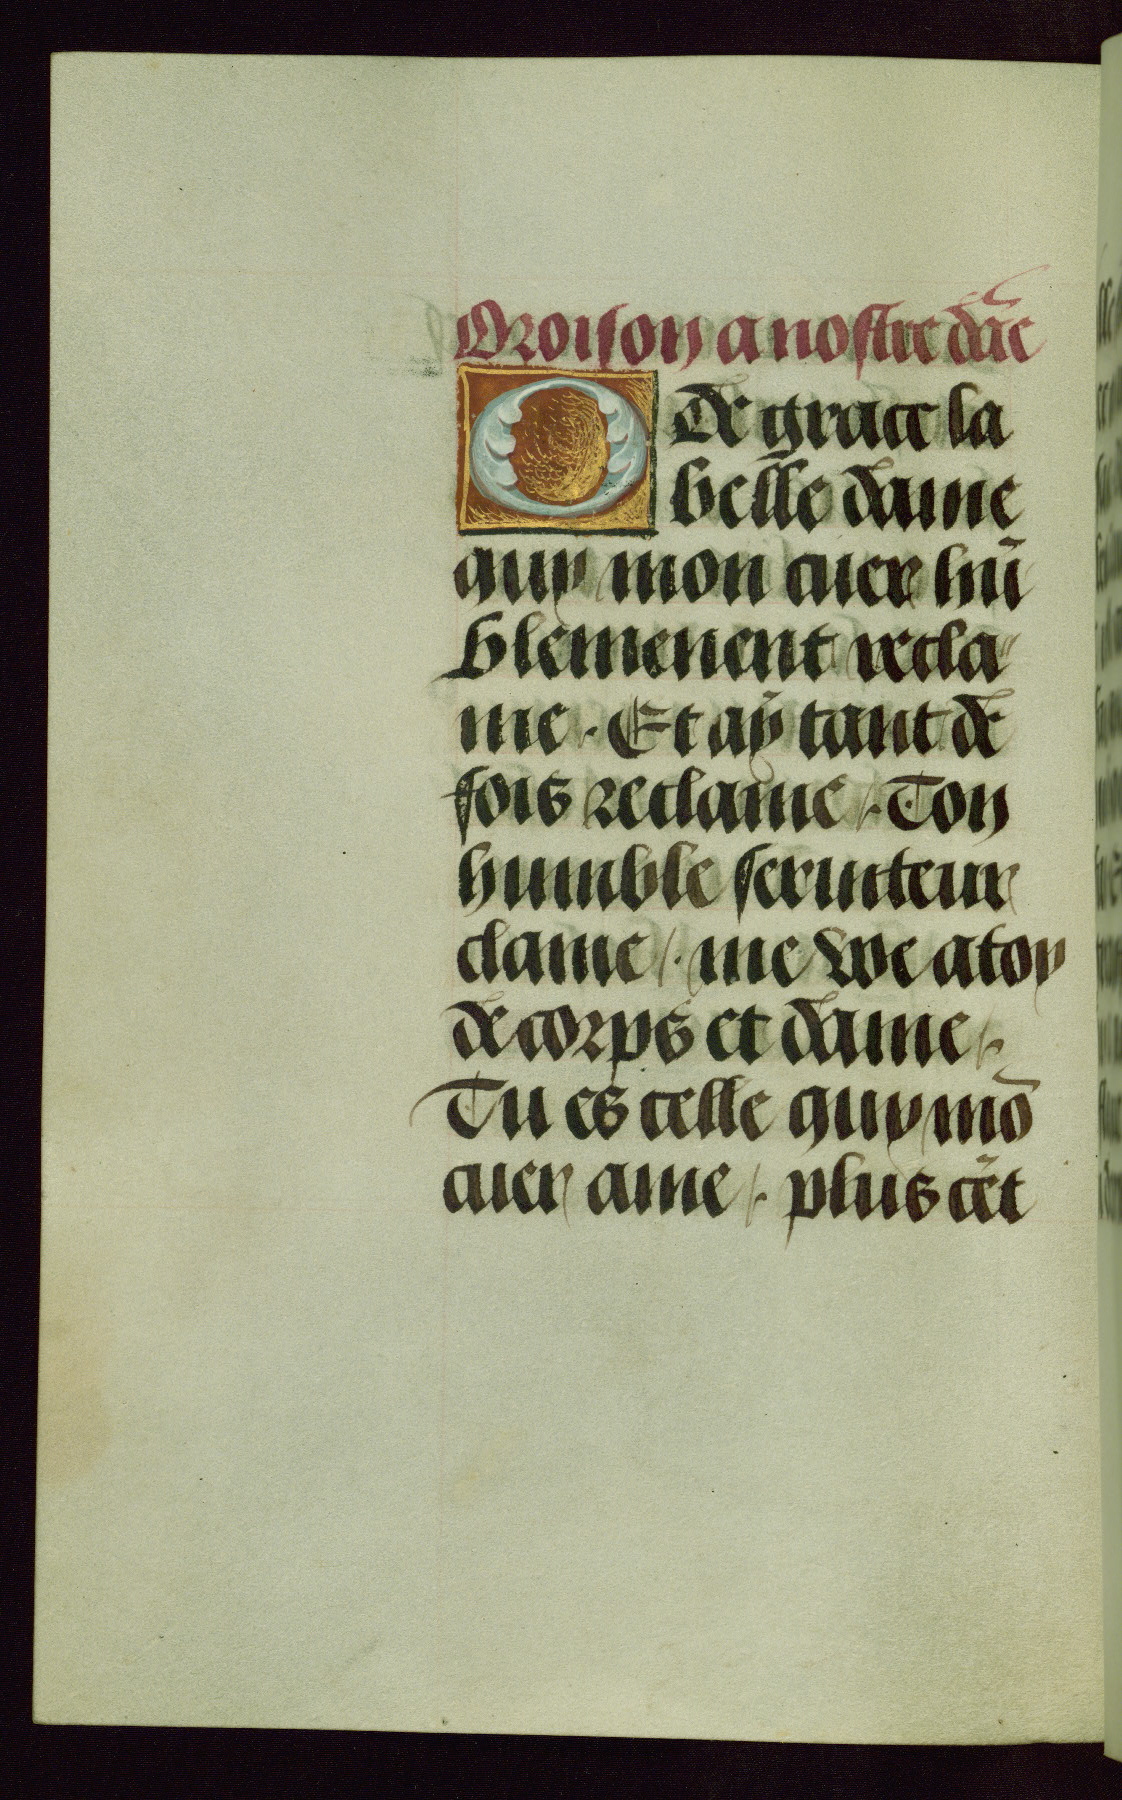 Oroison a nostre dãe
O de grace la
belle dame
quy mon cuer hũ
blemenent recla
me. Et aÿ tant de
fois reclame /. Ton
humble seruiteur
clame /. me voe a toy
de corps et dame /.
Tu es celle quy mõ
cuer ame /. plus cẽt